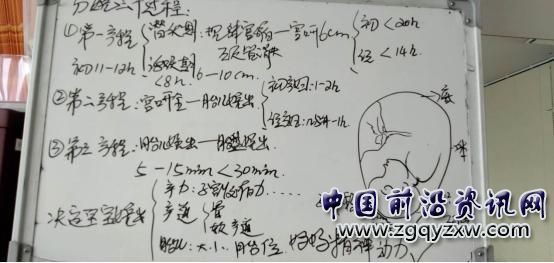 分娩三个过程:
①第一产程 潜伏期:规律宫缩—宫口6cm 初<20h
经<14h
初11-12h 活跃期 6-10cm
<8h
②第二产程:宫口全—胎儿娩出 初产妇:1-2h
③第三产程:胎儿娩出—胎盘娩出.
5-15min <30min
底
产力:
产道 骨
软产道
胎儿:大小.胎位.
精神动力
中国前沿资讯网
www.zgqyzxw.com